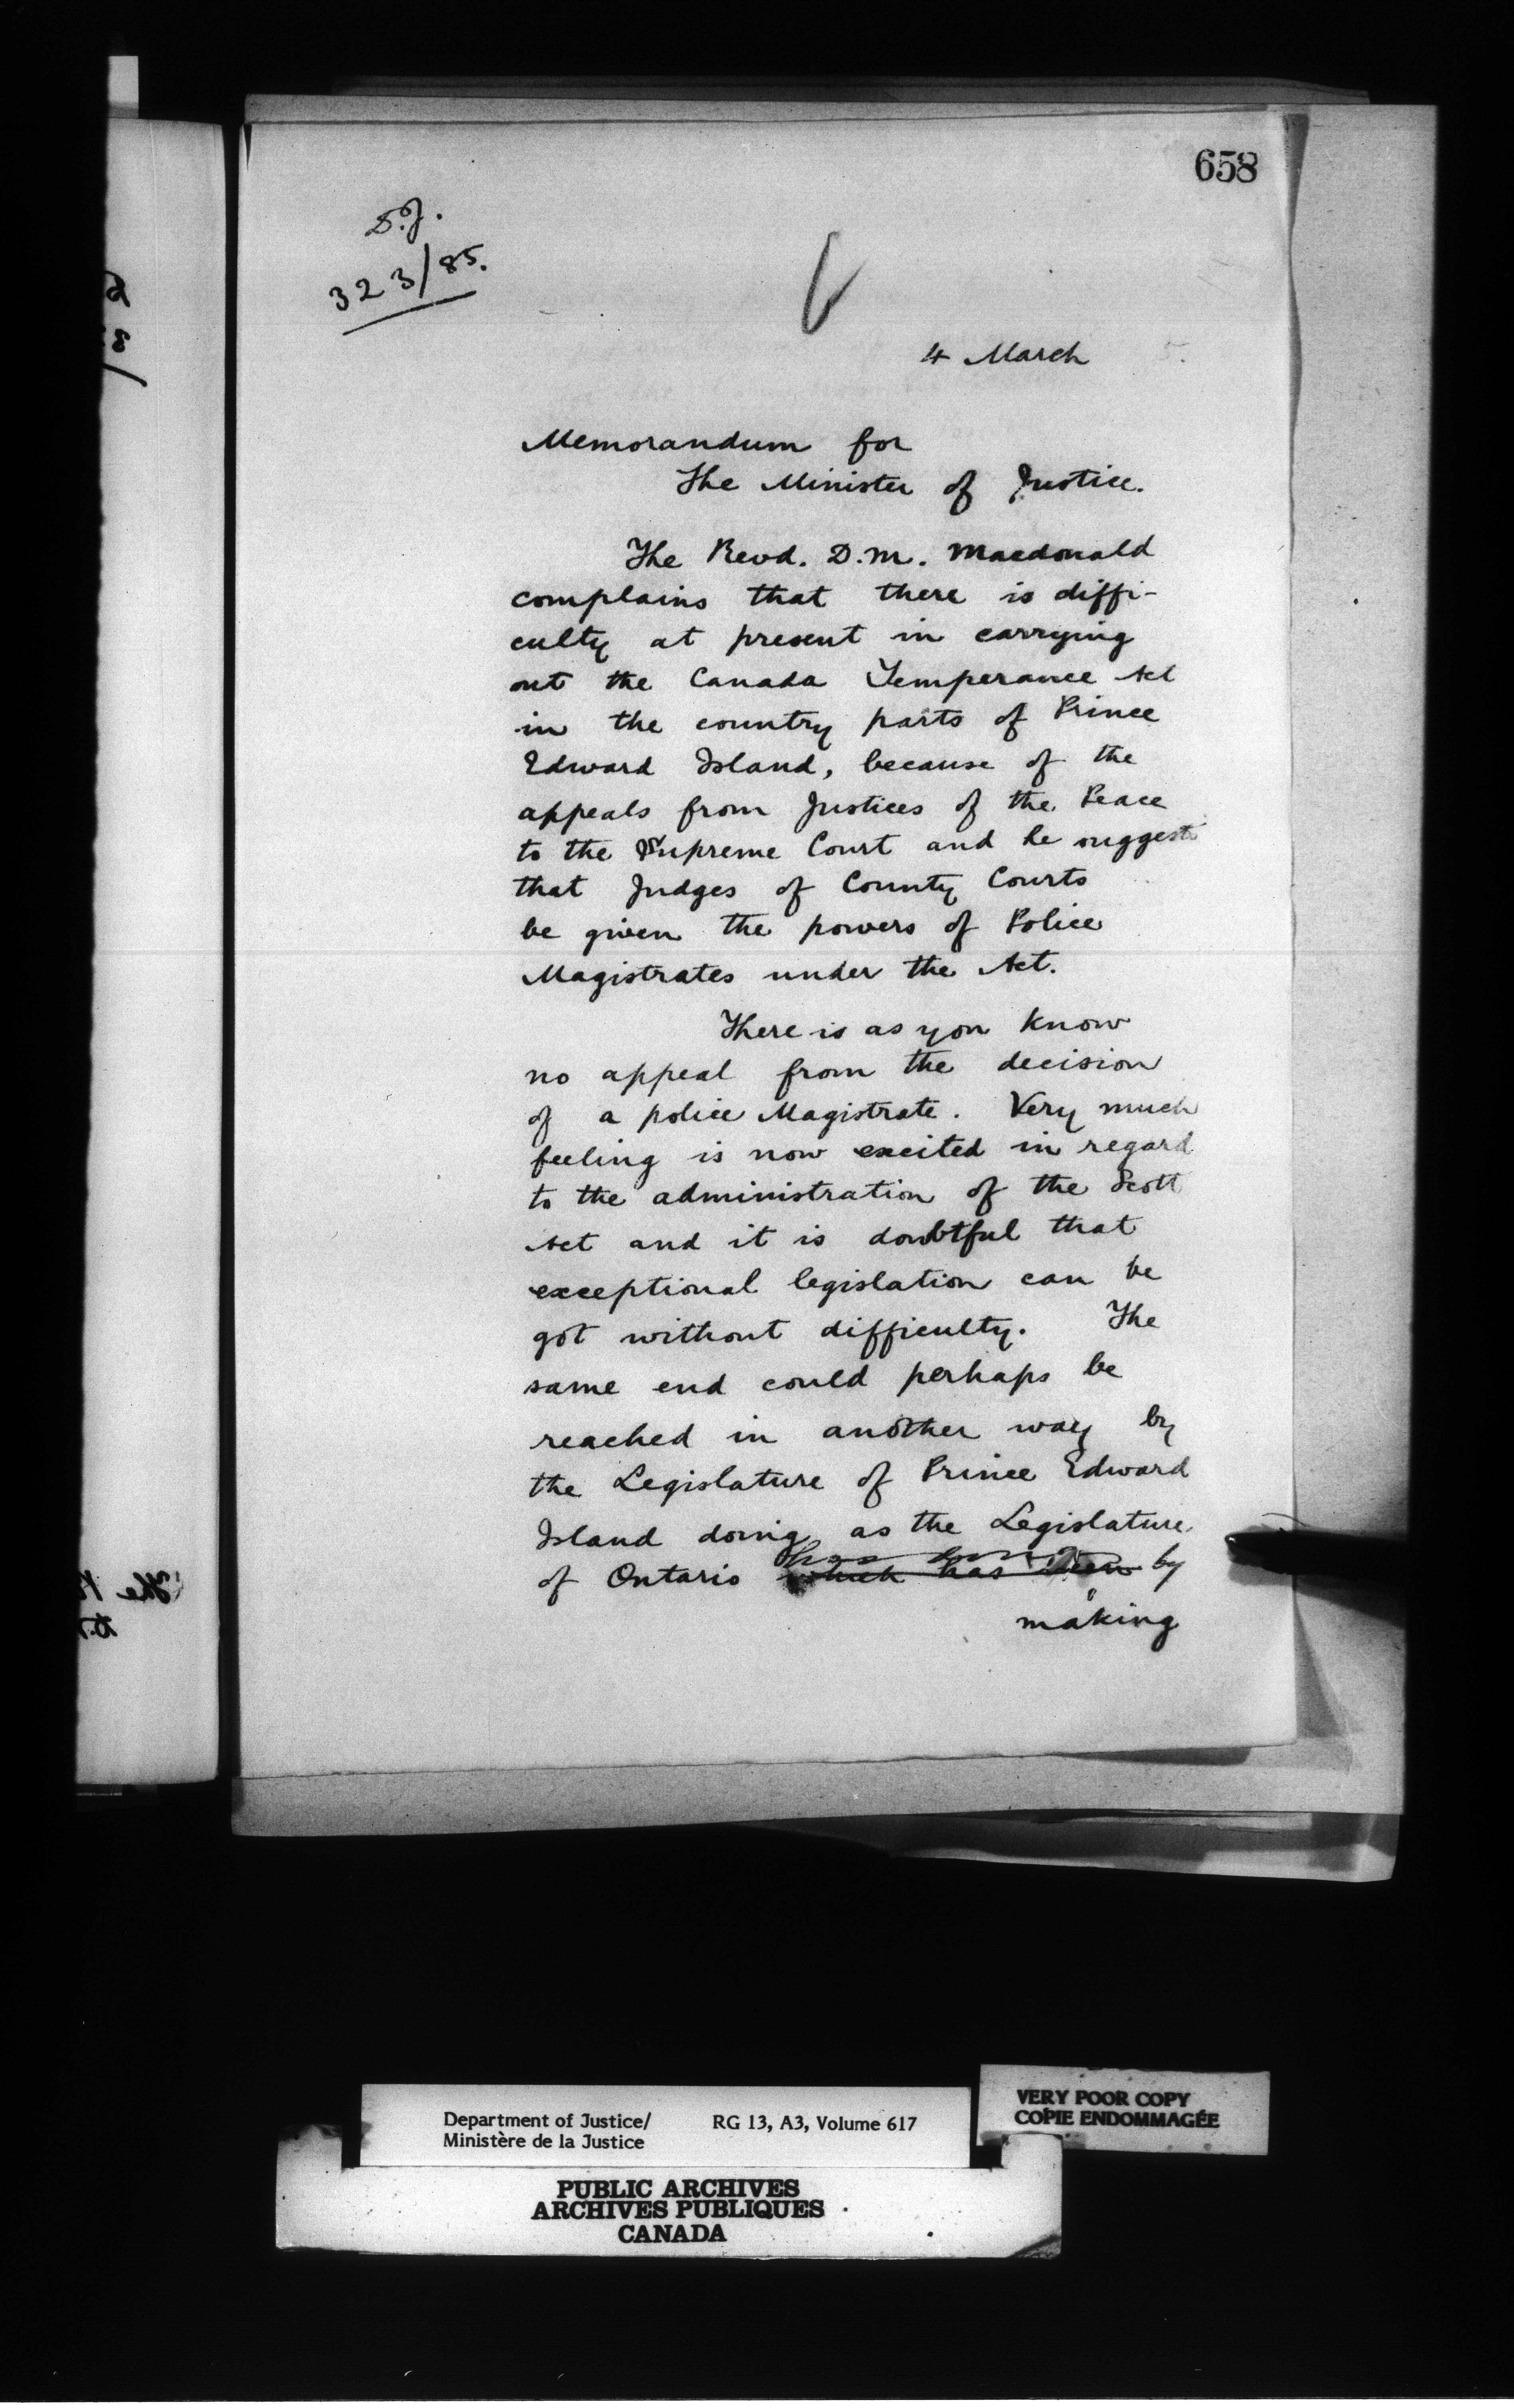 658
D.J.
323/85.
4 March 5.
Memorandum for
The Minister of Justice.
The Revd. D.M. Macdonald
complains that there is diffi-
culty at present in carrying
out the Canada Temperance Act
in the country parts of Prince
Edward Island, because of the
appeals from Justices of the Peace
to the Supreme Court and he suggests
that Judges of County Courts
be given the powers of Police
Magistrates under the Act.
There is as you know
no appeal from the decision
of a police Magistrate. Very much
feeling is now excited in regard
to the administration of the Scott
Act and it is doubtful that
exceptional legislation can be
got without difficulty. The
same end could perhaps be
reached in another way by
the Legislature of Prince Edward
Island doing as the Legislature
has done
of Ontario which has been by
making
The
Department of Justice/ RG 13, A3, Volume 617
Ministère de la Justice
VERY POOR COPY
COPIE ENDOMMAGÉE
PUBLIC ARCHIVES
ARCHIVES PUBLIQUES
CANADA